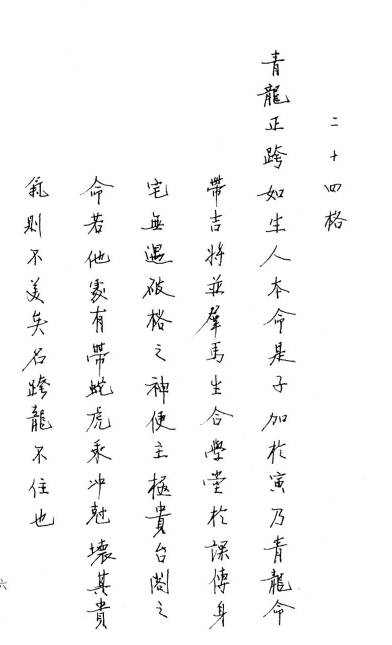 二十四格
青龍正跨如生人本命是子加於寅乃青龍命
帶吉將並驛馬生合學堂於課傳身
宅無遇破格之神便主極貴台閣之
命若他處有帶蛇虎乘沖尅壞其貴
氣則不美矣名跨龍不住也
六